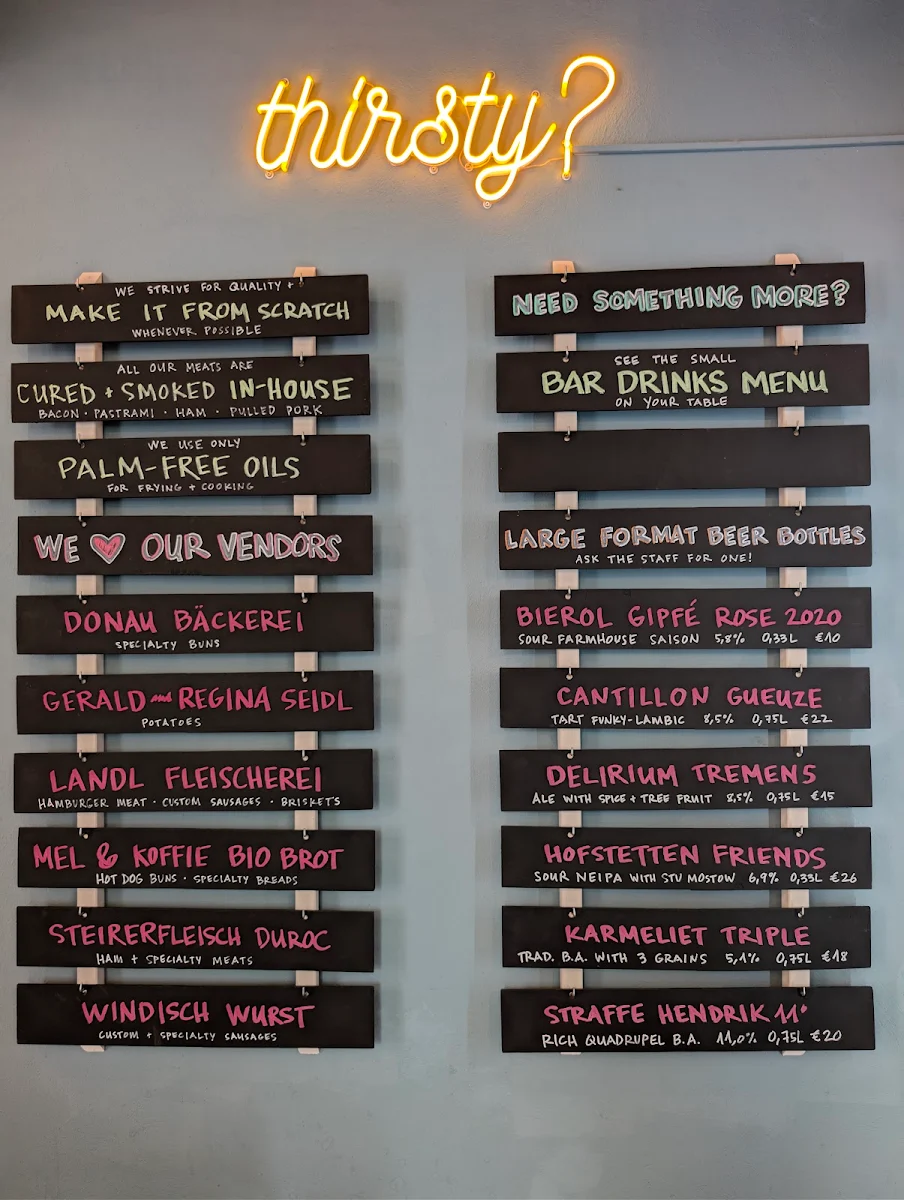 thirsty?
WE STRIVE FOR QUALITY +
MAKE IT FROM SCRATCH
WHENEVER POSSIBLE
ALL OUR MEATS ARE
CURED + SMOKED IN-HOUSE
BACON · PASTRAMI · HAM · PULLED PORK
WE USE ONLY
PALM-FREE OILS
FOR FRYING + COOKING
WE ♥ OUR VENDORS
DONAU BÄCKEREI
SPECIALTY BUNS
GERALD and REGINA SEIDL
POTATOES
LANDL FLEISCHEREI
HAMBURGER MEAT · CUSTOM SAUSAGES · BRISKETS
MEL & KOFFIE BIO BROT
HOT DOG BUNS · SPECIALTY BREADS
STEIRERFLEISCH DUROC
HAM + SPECIALTY MEATS
WINDISCH WURST
CUSTOM + SPECIALTY SAUSAGES
NEED SOMETHING MORE?
SEE THE SMALL
BAR DRINKS MENU
ON YOUR TABLE
LARGE FORMAT BEER BOTTLES
ASK THE STAFF FOR ONE!
BIEROL GIPFÉ ROSE 2020
SOUR FARMHOUSE SAISON 5,8% 0,33L €10
CANTILLON GUEUZE
TART FUNKY-LAMBIC 8,5% 0,75L €22
DELIRIUM TREMENS
ALE WITH SPICE + TREE FRUIT 8,5% 0,75L €15
HOFSTETTEN FRIENDS
SOUR NEIPA WITH STU MOSTOW 6,9% 0,33L €26
KARMELIET TRIPLE
TRAD. B.A. WITH 3 GRAINS 5,1% 0,75L €18
STRAFFE HENDRIK 11°
RICH QUADRUPEL B.A. 11,0% 0,75L €20